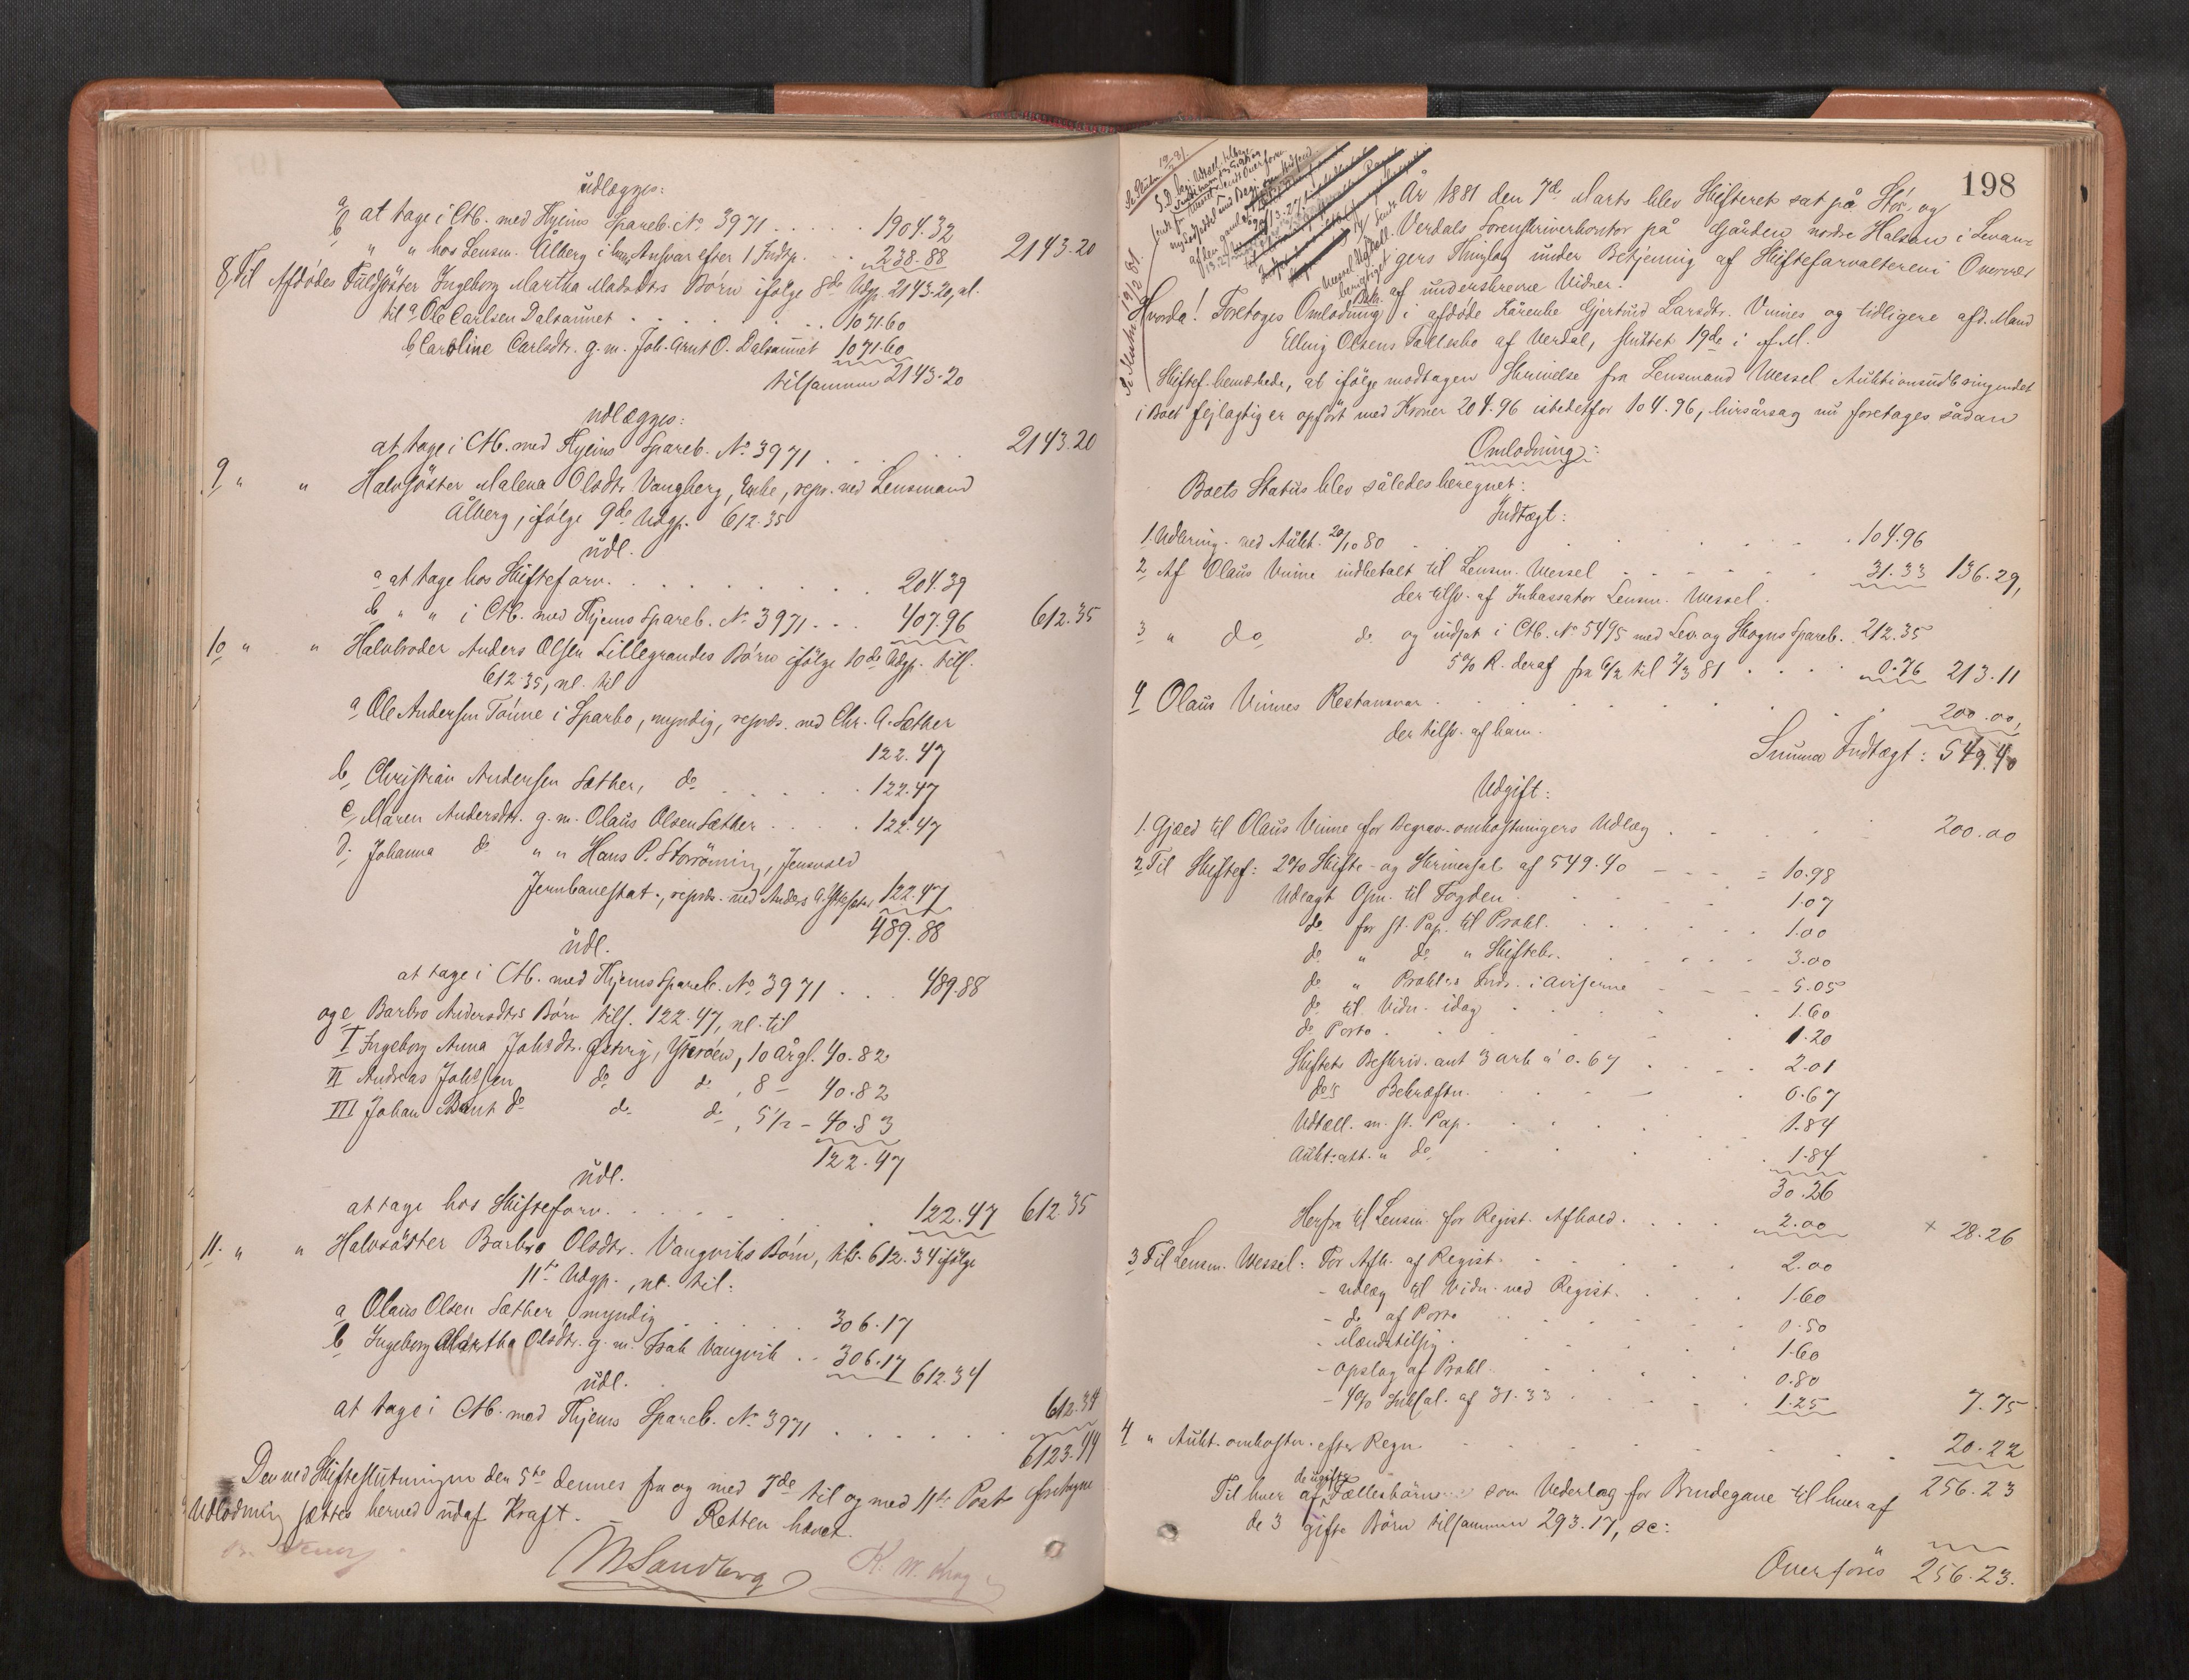 udlægges:
a at tage i Ctb. med Hjems Spareb. No 3971 . . . . . 1904.32
b " " hos Lensm. Ålberg i hans Ansvar efter 1 Indtp. . . 238.88 2143.20
8 Til Afdødes Fuldsöster Ingeborg Martha Madsdtrs Börn ifölge 8de Udgp. 2143.20, nl.
til a Ole Carlsen Dalsaunet . . . . . . 1071.60
b Caroline Carlsdtr. g. m. Joh. Arnt O. Dalsaunet 1071.60
tilsammen 2143.20
udlægges:
at tage i Ctb. med Hjems Spareb. No 3971 . . . . . 2143.20
9 " " Halvsöster Malena Olsdtr Vangberg, Enke, repr. ved Lensmand
Ålberg, ifölge 9de Udgp. 612.35
udl.
a at tage hos Skifteforv. . . . . . . . 204.39
b " " i Ctb. med Hjems Spareb. No 3971 . . . 407.96 612.35
10 " " Halvbroder Anders Olsen Lillegrandes Börn ifölge 10de Udgp. tils.
612.35, nl. til
a Ole Andersen Tönne i Sparbo, myndig, repræs. ved Chr. A. Sæther
122.47
b, Christian Andersen Sæther, do . . . . . 122.47
c, Maren Andersdtr. g. m. Olaus Olsen Sæther . . . . 122.47
d. Johanna do " " Hans P. Storröming, Jensvold
Jernbanestat., repræs. ved Anders A. 122.47
489.88
udl.
at tage i Ctb. med Hjems Spareb. No 3971 . . . 489.88
og e Barbro Andersdtrs Börn tils. 122.47, nl. til
I Ingeborg Anna Johsdtr. Østvig, Ytteröen, 10 År gl. 40.82
II Andreas Johssen do do , 8 - 40.82
III Johan Bernt do do do , 5 1/2 - 40.83
122.47
udl.
at tage hos Skifteforv. . . . . . . 122.47 612.35
11. " " Halvsöster Barbro Olsdtr. Vangviks Börn, tils. 612.34 ifölge
11te Udgp., nl. til:
a Olaus Olsen Sæther, myndig . . . . . 306.17
b Ingeborg Martha Olsdtr. g. m. Isak Vangvik . . 306.17 612.34
udl.
at tage i Ctb. med Hjems Spareb. No 3971 . . . . . . 612.34
6123.44
Den ved Skifteslutningen den 5te dennes fra og med 7de til og med 11te Post
Udlodning sættes herved ud af Kraft. - Retten hævet.
M Sandberg K. M. Krog
198
År 1881 den 7de Marts blev Skifteret sat på Stör- og
Verdals Sorenskriverkontor på Gården nordre Halsan i Levan-
gers Thinglag under Betjening af Skifteforvalteren i Overvær
af underskrevne Vidner.
Hvorda! Foretoges Omlodning i afdöde Kårenke Gjertrud Larsdtr. Vinnes og tidligere afd. Mand
Elling Olsens Fællesbo af Verdal, sluttet 19de i f. M.
Skiftef. bemærkede, at ifölge modtagen Skrivelse fra Lensmand Wessel Auktionsudbringendet
i Boet fejlagtig er opfört med Kroner 204.96 istedetfor 104.96, hvisårsag nu foretages sådan
Omlodning:
Boets Status blev således beregnet:
Indtægt:
1. Udbring. ved Aukt. 20/10 80 . . . . . . 104.96
2 Af Olaus Vinne indbetalt til Lensm. Wessel . . . . . 31.33 136.29,
der tilsv. af Inkassator Lensm. Wessel.
3 " do do og indsat i Ctb. No 5495 med Lev. og Skogns Spareb. 212.35
5% R. deraf fra 6/2 til 7/3 81 . . . . 0.76 213.11
4 Olaus Vinnes Restansvar . . . . . . 200.00,
der tilsv. af ham.
Summa Indtægt: 549.40
Udgift:
1. Gjæld til Olaus Vinne for Begrav. omkostningers Udlæg . . . . . 200.00
2 Til Skiftef: 2% Skifte- og Skriversal af 549.40 - - - - 10.98
Udlagt Opm. til Fogden . . . . . 1.07
do for st. Pap. til Prokl. . . . . . 1.00
do " do " Skiftebr. . . . . . 3.00
do " Proklas Inds. i Aviserne - - - - 5.05
do til Vidn. idag . . . . . 1.60
do Porto . . . . . 1.20
Skiftets Beskriv. ant 3 ark a 0.67 . . . . 2.01
do's Bekræftn. . . . - . 0.67
Udtall. m. st. Pap. . . . . . 1.84
Aukt. att. " do . . . . 1.84
30.26
Herfra til Lensm. for Regist. Afhold. . . . . 2.00 + 28.26
3 Til Lensm. Wessel: For Afh. af Regist. . . . . 2.00
- udlæg til Vidn. ved Regist. . . . 1.60
- do af Porto . . . . 0.50
- Mændstilsig . . . . . 1.60
- Opslag af Prokl. . . . . 0.80
- 4% Inksal. af 31.33 . . . . . 1.25 7.75
4 " Aukt. omkostn. efter Regn. . . . . . 20.22
256.23
Til hver af de ugifte Fællesbörn som Vederlag for Brudegave til hver af
de 3 gifte Börn tilsammen 293.17, sc:
Overföres 256.23.